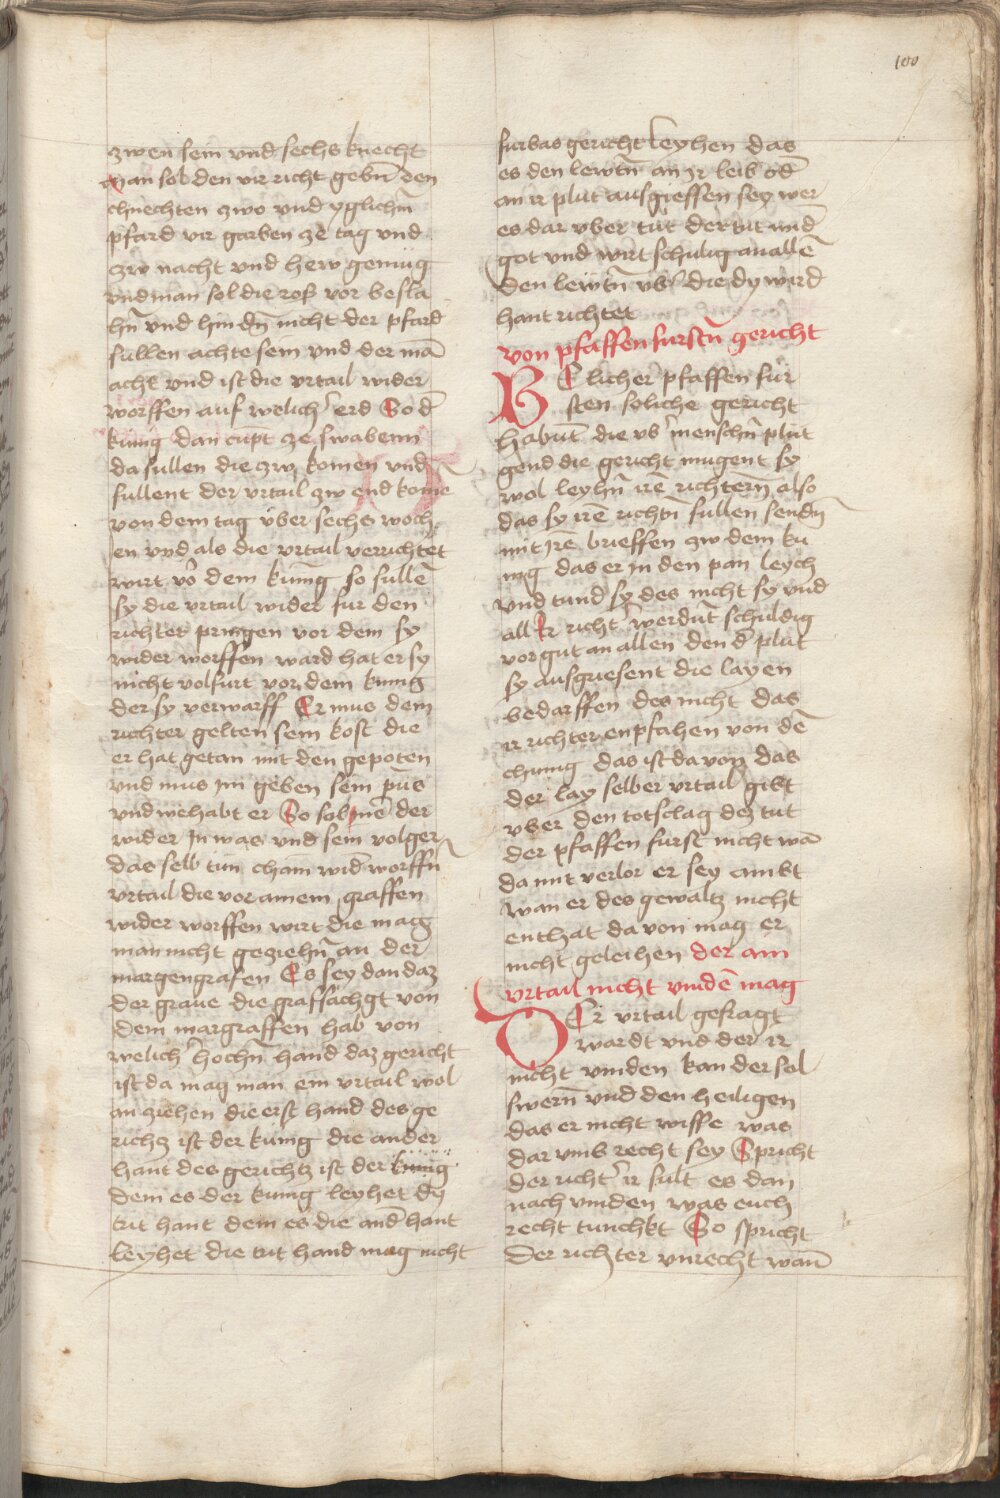 100
zwen sein vnd sechs knecht
Man sol den vir richt gebn̄ den
chnechten zwo vnd yglichm̄
pfard vir garben ze tag vnd
zw nacht vnd hew genug
vnd man sol die roß vor besla
hn̄ vnd hin dn̄ nicht der pfard
sullen achte sein vnd der mā
acht vnd ist die vrtail wider
worffen auf welich̓ erd So d̄
kunig dan cupt ze swabenn
da sullen die zw komen vnd
sullent der vrtail zw end kome
von dem tag vber sechs woch
en vnd als die vrtail verrichtet
wirt vō dem kunig so sullē
sy die vrtail wider fur den
richter pringen vor dem sy
wider worffen ward hat er sy
nicht volfurt vor dem kunig
der sy verwarff Er mus dem
richter gelten sein kost die
er hat getan mit den gepoten
vnd mus im geben sein pus
vnd wehabt er So sol inē der
wider In was vnd sein volger
das selb tun cham wid̄ worffn̄
vrtail die vor ainem graffen
wider worffen wirt die mag
man nicht geziehn̄ an der
margengrafen Es sey dan daz
der graue die graffschgt von
dem margraffen hab von
welich̓ hochn̄ hand daz gericht
ist da mag man ein vrtail wol
an ziehen die erst hand des ge
richz ist der kunig die ander
hant des gerichtz ist der kunig
dem es der kunig leyhet dy
trit hant dem es die and̄ hant
leyhet die trit hand mag nicht
furbas gericht leyhen das
es den lewtn̄ an ir leib od̄
an ir plut ausgieffen sey wer
es dar vber tut der tut wid̄
got vnd wirt schulig an allē
den lewtn̄ vb̓ die dy wird
hant richtet
von pfaffen furstn̄ gericht
WElicher pfaffen fur
sten soliche gericht
habūt die vb̓ menschn̄ plut
gend die gericht mugent sy
wol leyhn̄ irē richtern̄ also
das sy irē richtn̄ sullen sendn̄
mit irē brieffen zw dem ku
nig das er in den pan leych
vnd tund sy des nicht sy vnd
all Ir richt̓ werdūt schuldig
vor gut an allen den d̄ plut
sy ausgiesent die layen
bedarffen des nicht das
ir richter enpfahen von dē
chunig das ist da von das
der lay selber vrtail gibt
vber den totslag dez tut
der pfaffen furst nicht wā
da mit verlor er sey ambt
wan er des gewaltz nicht
enthat da von mag er
nicht geleihen der ain
vrtail nicht vindē mag
DEr vrtail gefragt
wardt vnd der ir
nicht vinden kan der sol
swern̄ vnd den heiligen
das er nicht wisse was
dar vmb recht sey Spricht
der richt̓ ir sult es dan
nach vinden was euch
recht tunchkt So spricht
der richter vnrecht wan̄